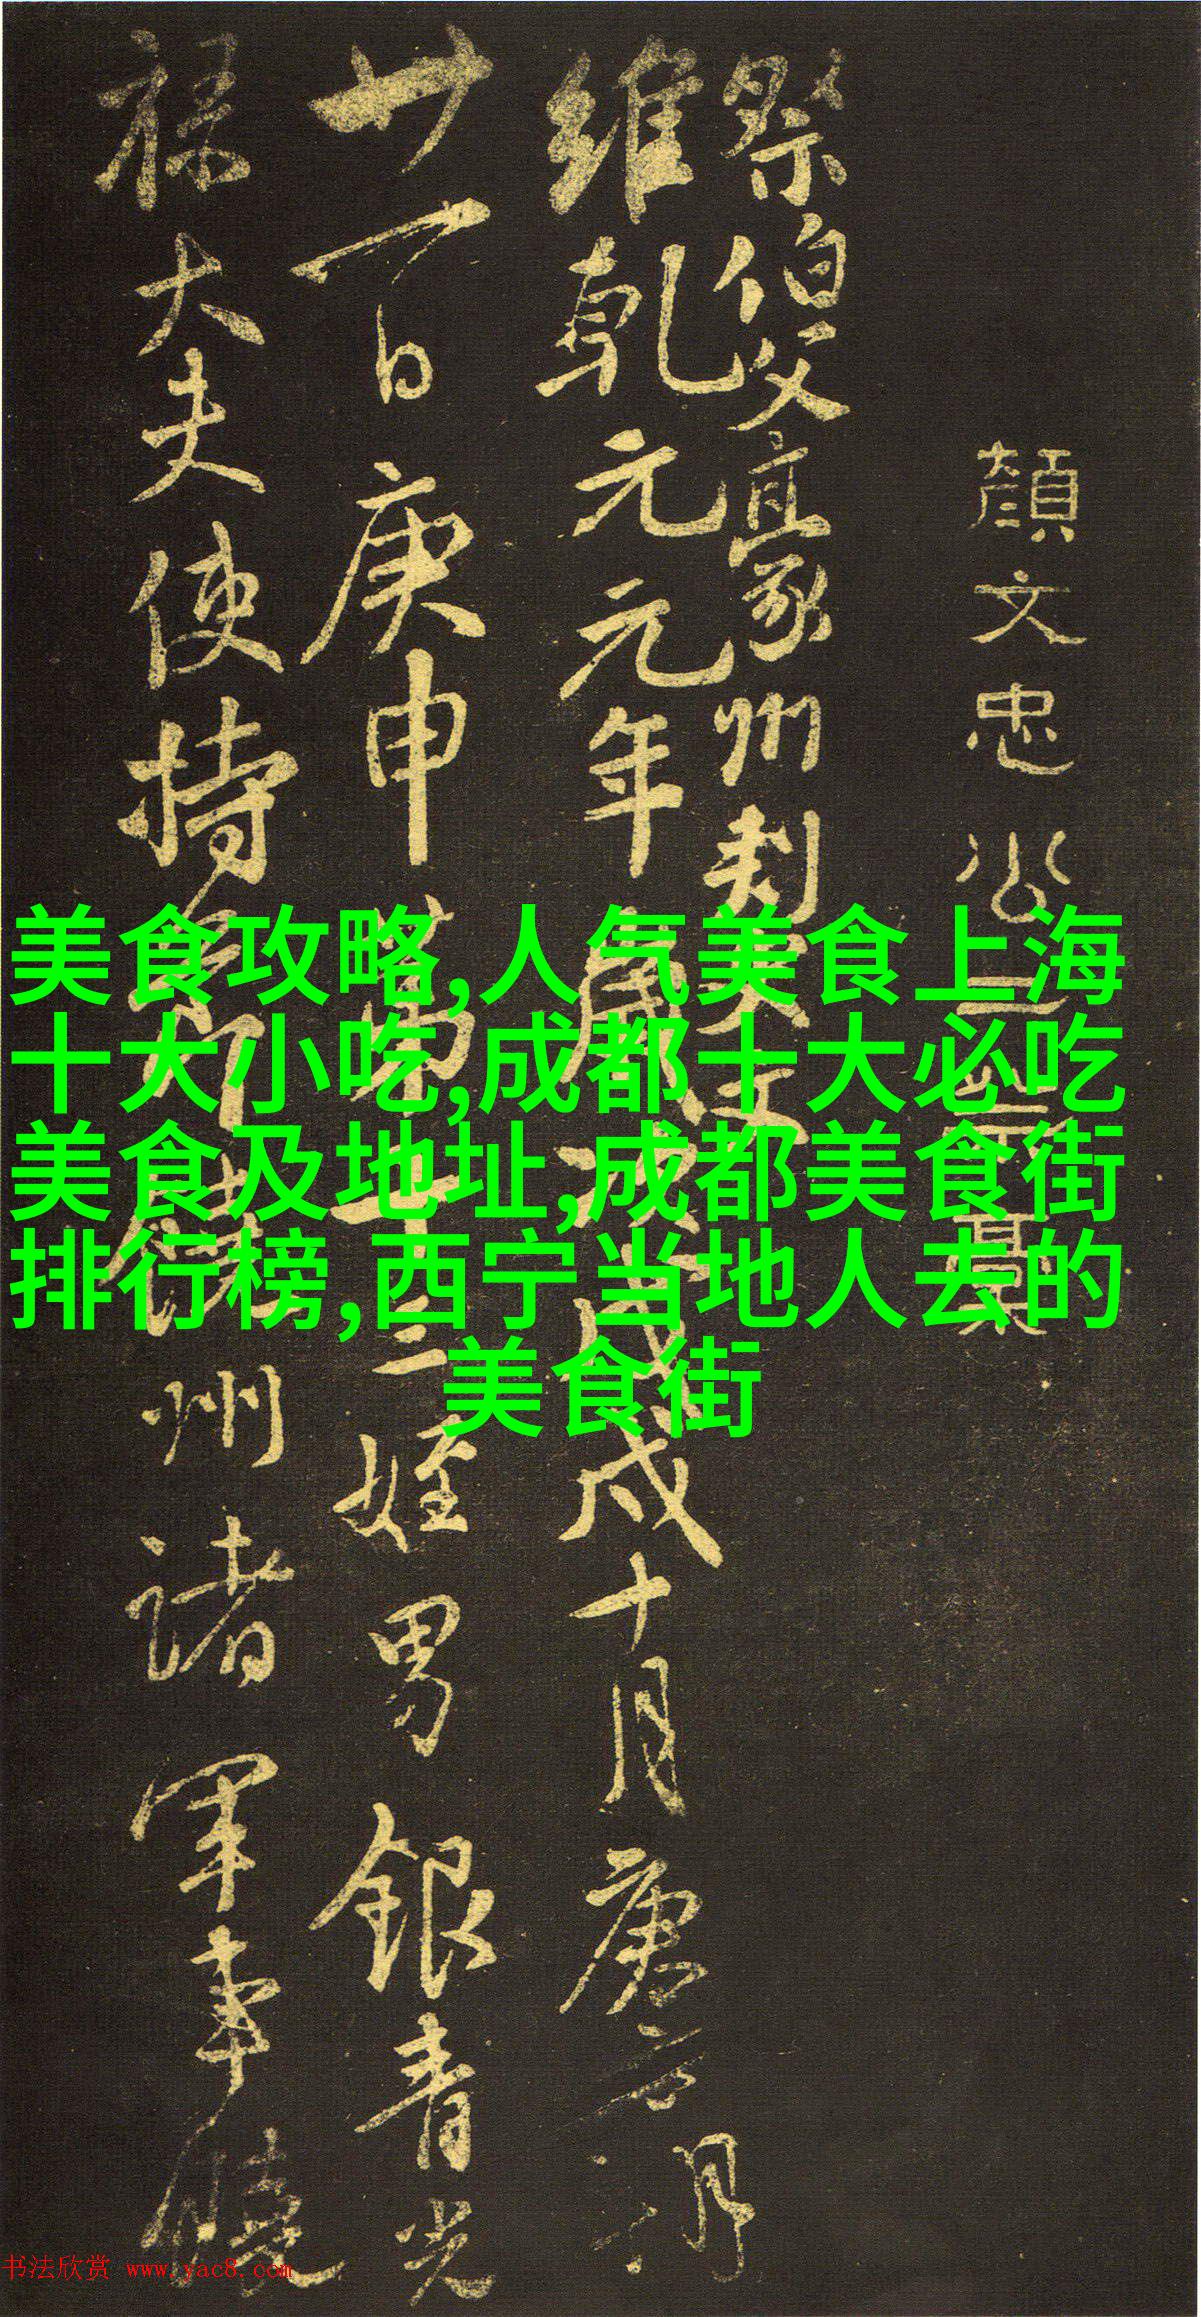 顏文忠公
祭伯父豪州刺史文
維乾元元年歲次戊戌十月庚
廿一日庚申第十三姪男銀青光
祿大夫使持節饒州諸軍事饒
美食攻略,人气美食上海
十大小吃,成都十大必吃
美食及地址,成都美食街
排行榜,西宁当地人去的
美食街
书法欣赏 www.yac8.com